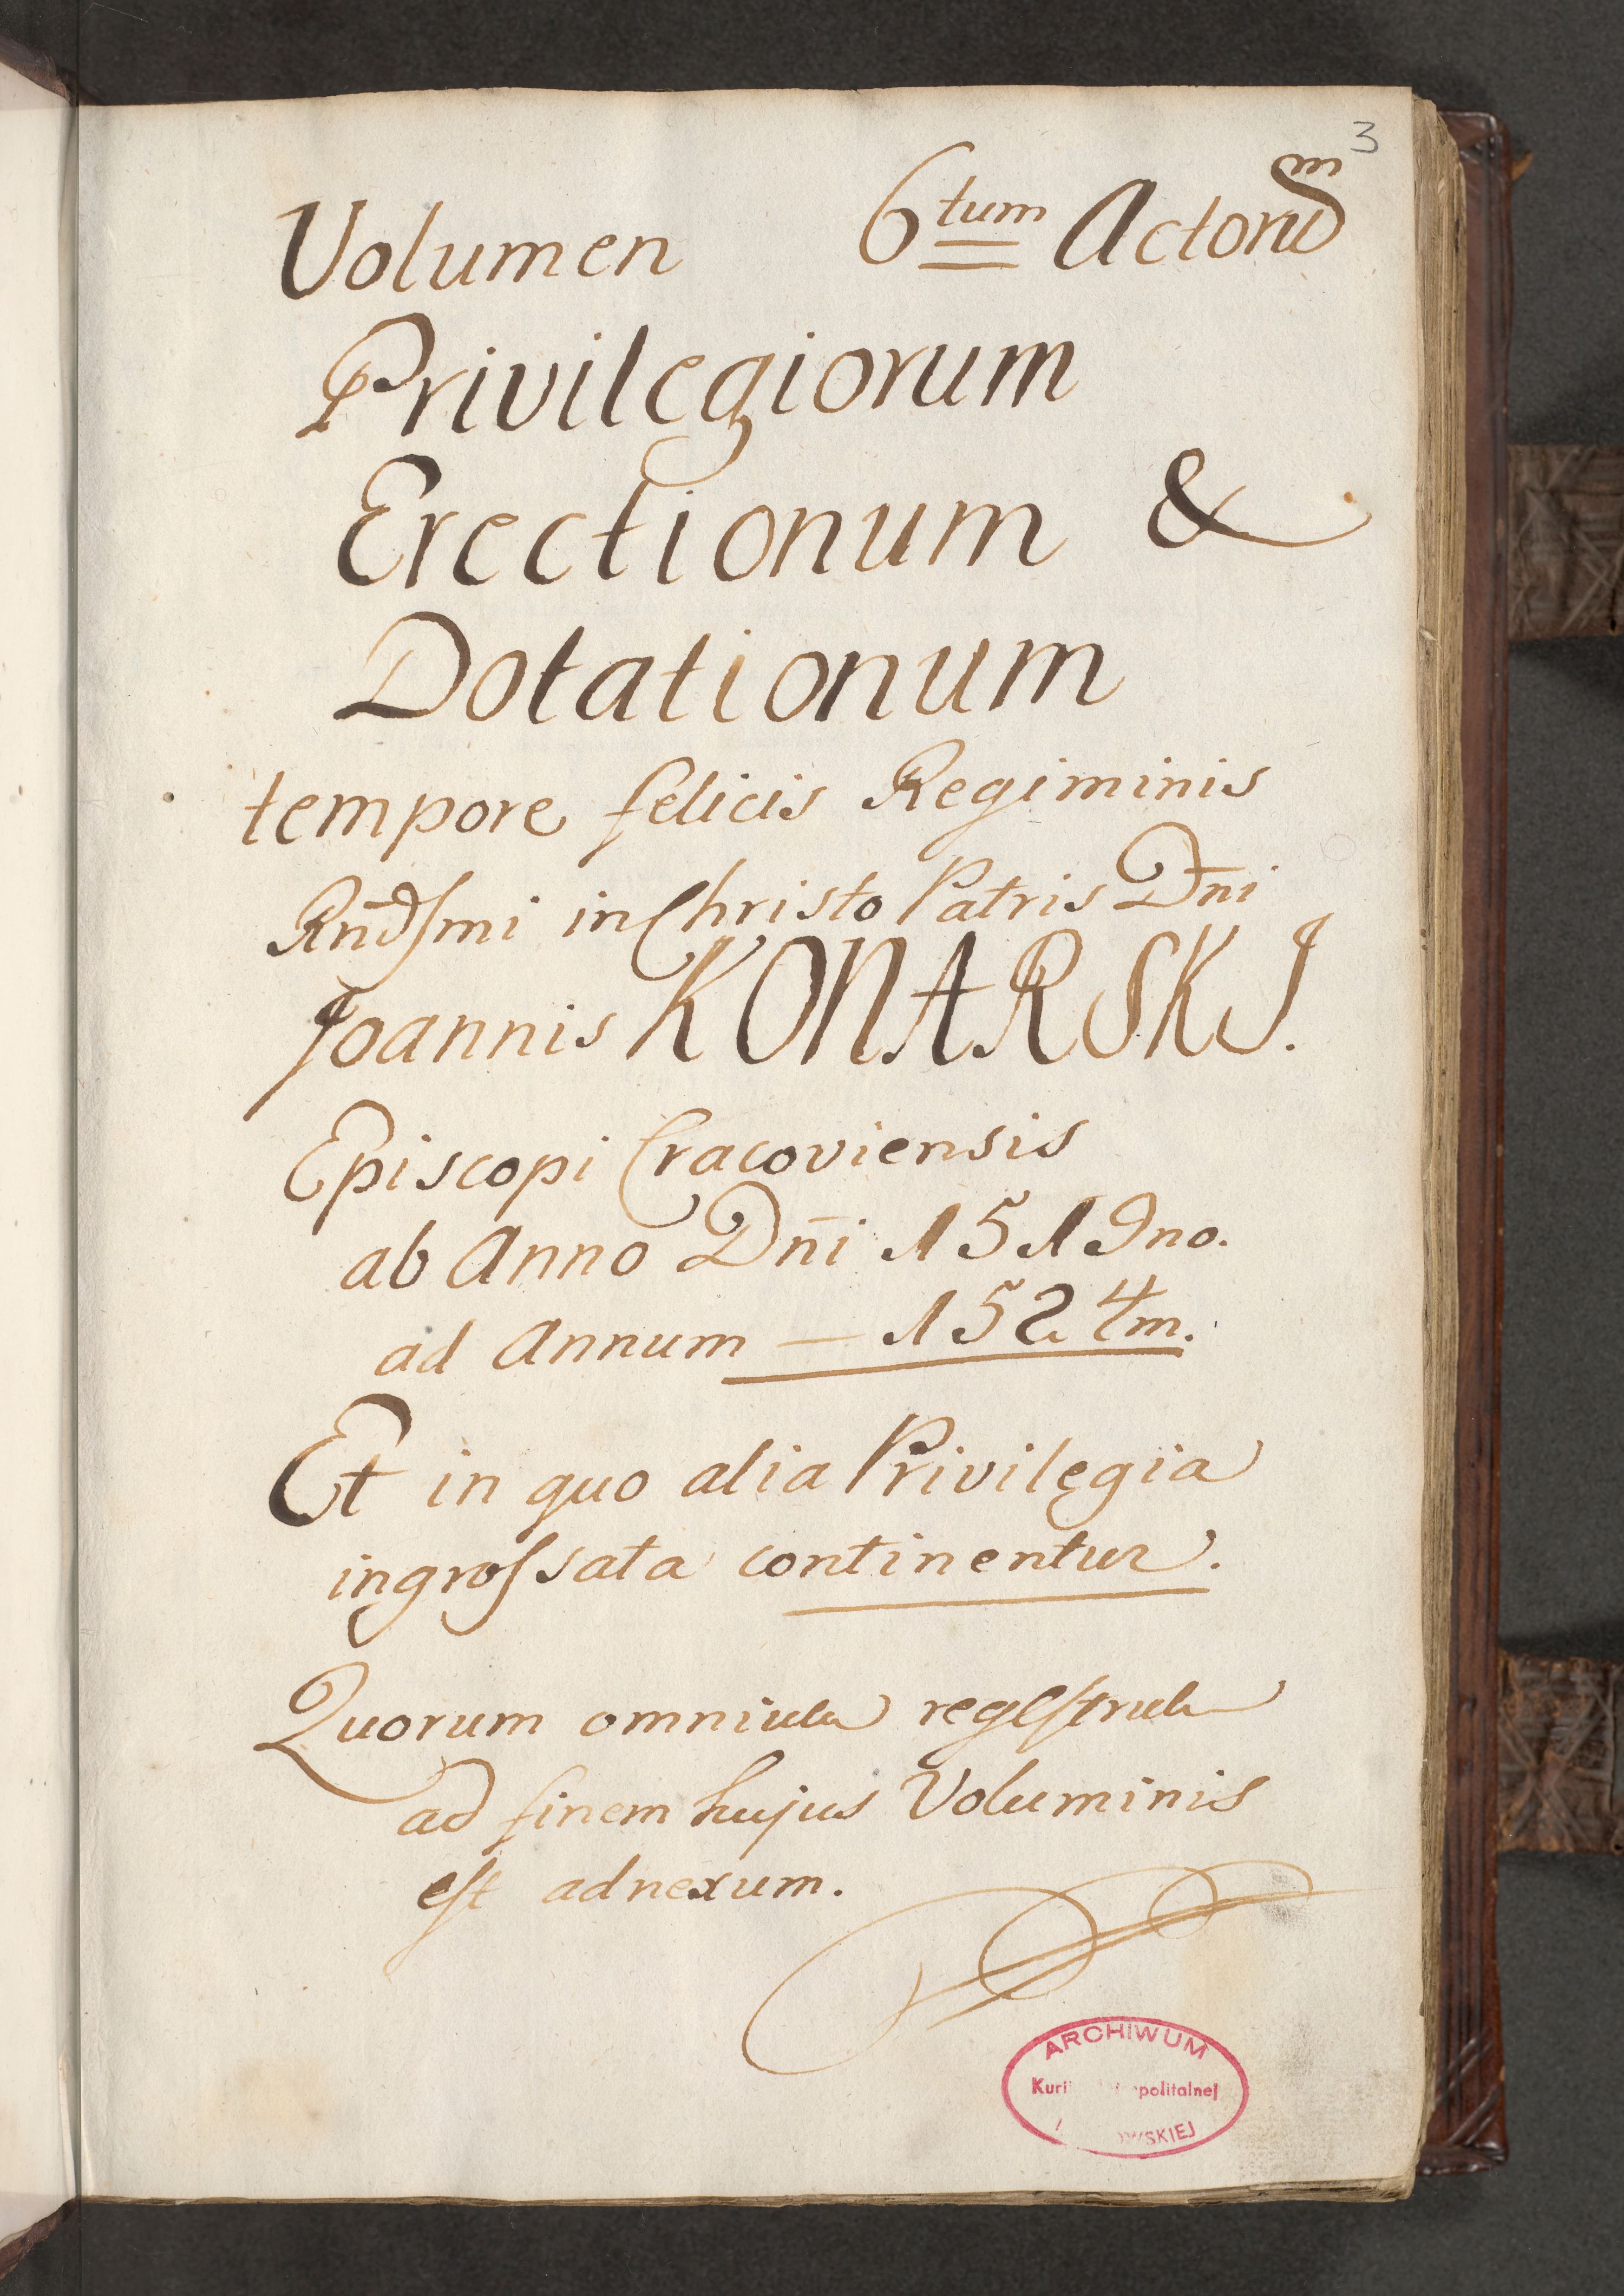 3
Volumen 6tum Actorum
Privilegiorum
Erectionum &
Dotationum
tempore felicis Regiminis
Rnd̄ſmi in Christo Patris Dn̄i
Joannis KONARSKJ.
Episcopi Cracoviensis
ab Anno Dn̄i 1519no.
ad Annum — 1524m.
Et in quo alia Privilegia
ingroſsata continentur.
Quorum omnium regeſtrum
ad finem hujus Voluminis
eſt adnexum.
ARCHIWUM